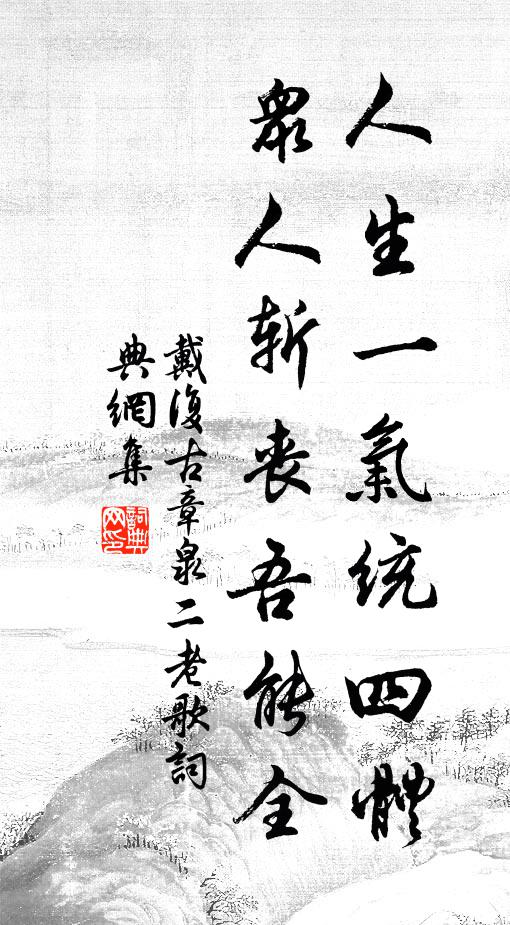 人生一氣統四體
眾人斲喪吾能全
戴復古章泉二老歌詞
典網集
詞典網印